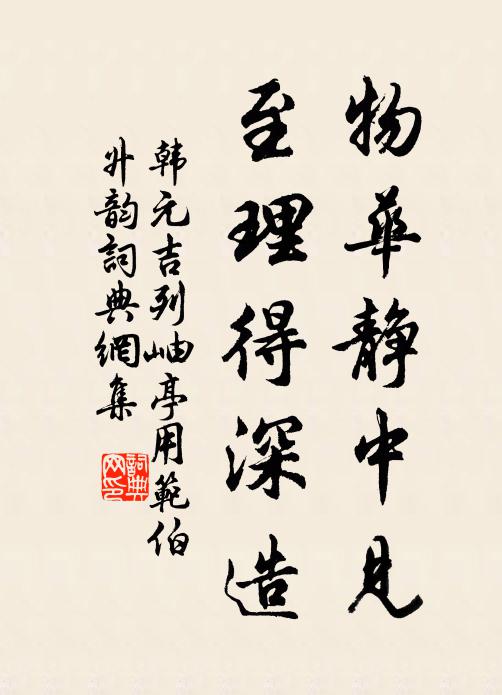 物華静中見
至理得深造
韩元吉列岫亭用範伯
外韵詞典網集
詞典
网印